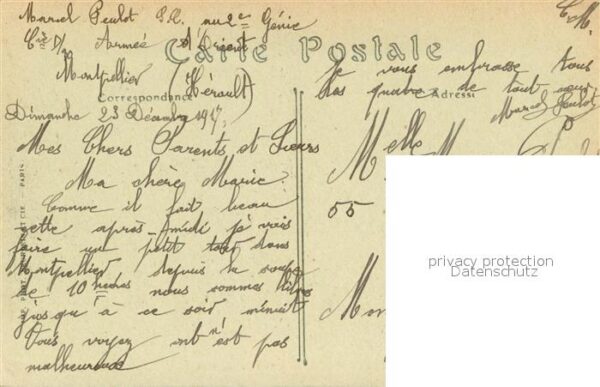 Marcel Peulot S.C. au 2e Génie
Cie D/2 Armée d'Orient
Carte Postale
Montpellier (Hérault)
Correspondance
Adresse
Je vous embrasse tous
les quatre de tout cœur
Marcel Peulot
Dimanche 23 Décembre 1917
Mes Chers Parents et Sœurs
Ma chère Marie
Comme il fait beau
cette après-midi je vais
faire un petit tour dans
Montpellier depuis la soupe
de 10 heures nous sommes libres
jusqu'à ce soir minuit
Vous voyez ont n'est pas
malheureux
Melle
55
PARIS
C.M.
privacy protection
Datenschutz